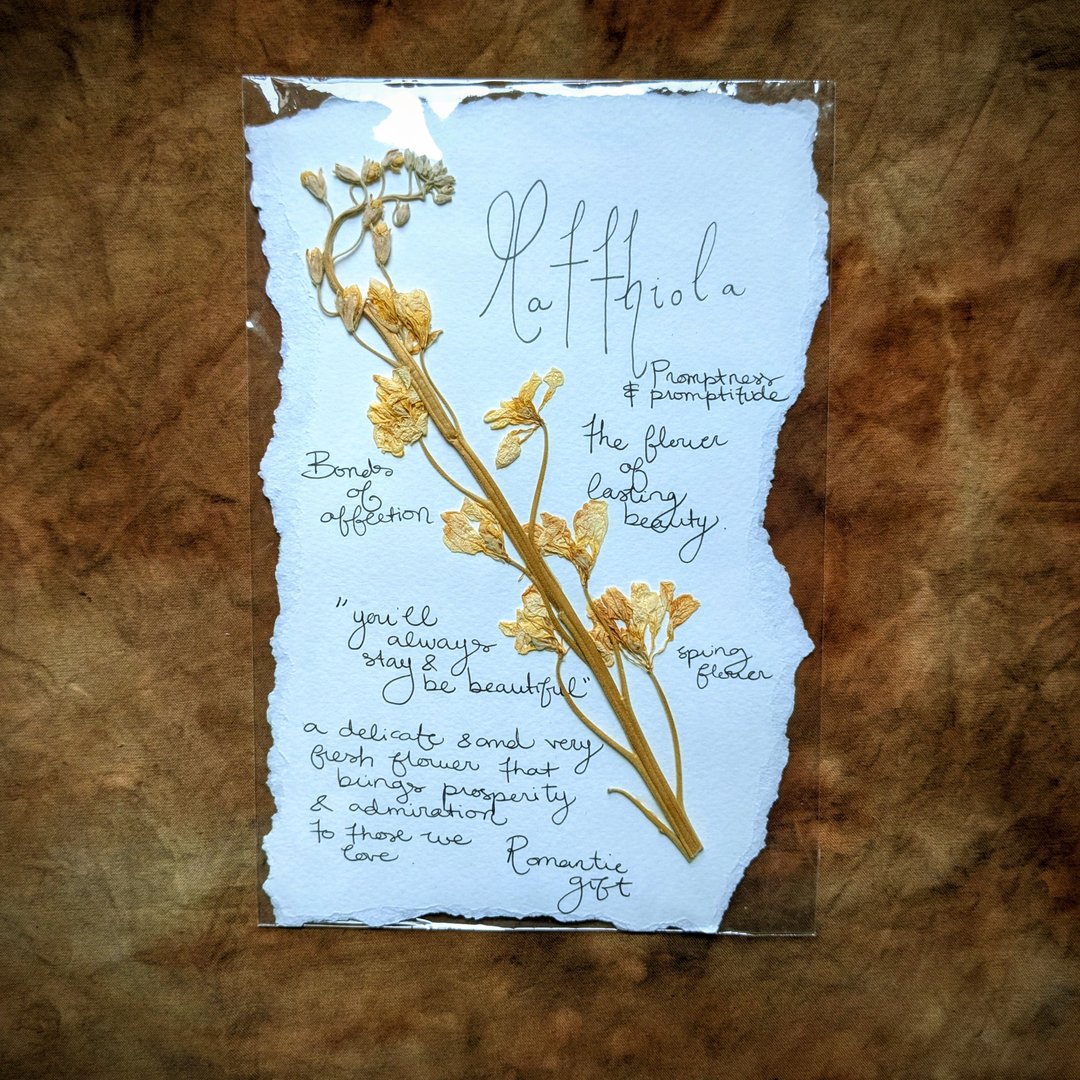 Matthiola
Promptness
& promptitude
The flower
of
lasting
beauty.
Bonds
of
affection
"you'll
always
stay &
be beautiful"
spring
flower
a delicate and very
fresh flower that
brings prosperity
& admiration
to those we
love.
Romantic
gift